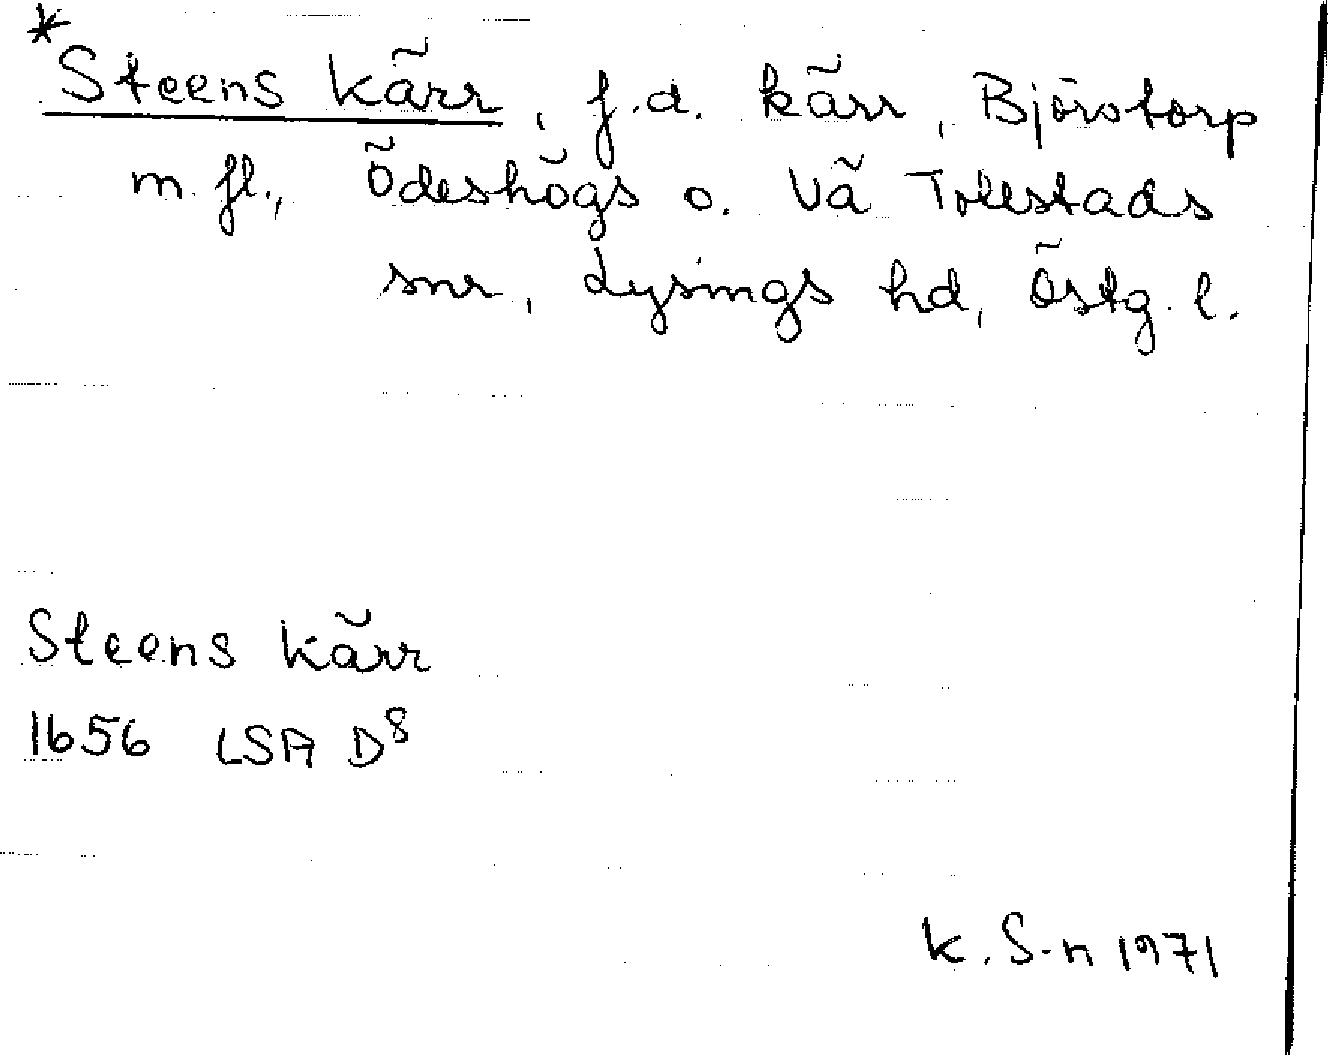 *Steens kärr, f.d. kärr, Björstorp
m. fl., Ödeshögs o. Vä Tollstads
snr, Lysings hd, Östg. l.
Steens kärr
1656 LSA D8
K. S-n 1971